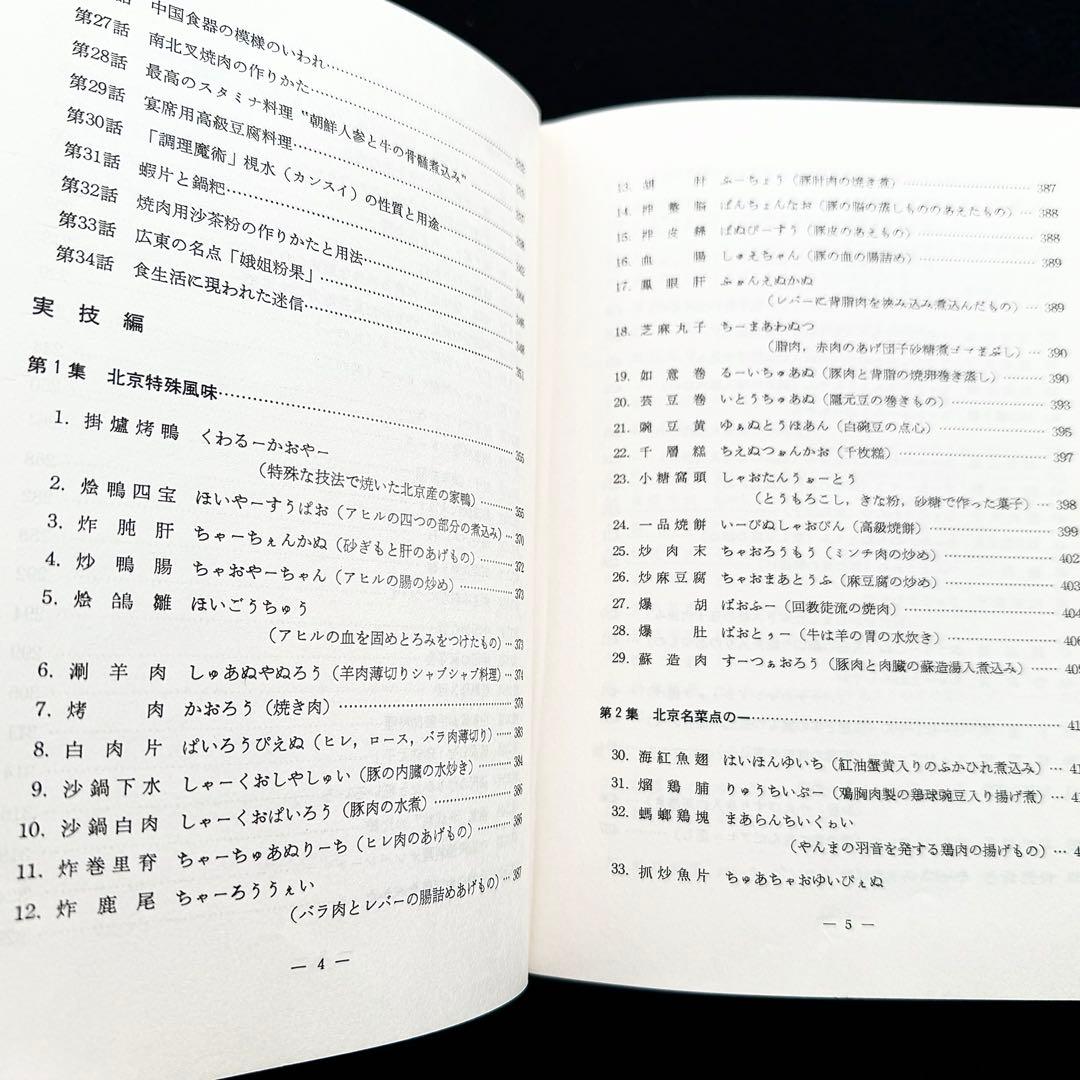 話 中国食器の模様のいわれ……
第27話 南北叉焼肉の作りかた……
第28話 最高のスタミナ料理“朝鮮人参と牛の骨髄煮込み”
第29話 宴席用高級豆腐料理……
第30話 「調理魔術」梘水(カンスイ)の性質と用途……
第31話 蝦片と鍋粑……
第32話 焼肉用沙茶粉の作りかたと用法……
第33話 広東の名点「娥姐粉果」……
第34話 食生活に現われた迷信……351
実技編
第1集 北京特殊風味……355
1. 掛爐烤鴨 くわるーかおやー
(特殊な技法で焼いた北京産の家鴨)……355
2. 燴鴨四宝 ほいやーすうぱお(アヒルの四つの部分の煮込み)…370
3. 炸肫肝 ちゃーちぇんかぬ(砂ぎもと肝のあげもの)……372
4. 炒鴨腸 ちゃおやーちゃん(アヒルの腸の炒め)……373
5. 燴鴿雛 ほいごうちゅう
(アヒルの血を固めとろみをつけたもの)…373
6. 涮羊肉 しゅあぬやぬろう(羊肉薄切りシャブシャブ料理)…374
7. 烤肉 かおろう(焼き肉)……378
8. 白肉片 ぱいろうぴえぬ(ヒレ,ロース,バラ肉薄切り)…383
9. 沙鍋下水 しゃーくおしやしゅい(豚の内臓の水炊き)……384
10. 沙鍋白肉 しゃーくおぱいろう(豚肉の水煮)……386
11. 炸巻里脊 ちゃーちゅあぬりーち(ヒレ肉のあげもの)……386
12. 炸鹿尾 ちゃーろううぇい
(バラ肉とレバーの腸詰めあげもの)…387
— 4 —
13. 胡肘 ふーちょう(豚肘肉の焼き煮)……387
14. 拌整脳 ぱんちょんなお(豚の脳の蒸しもののあえたもの)…388
15. 拌皮絲 ぱぬぴーすう(豚皮のあえもの)……388
16. 血腸 しゅえちゃん(豚の血の腸詰め)……389
17. 鳳眼肝 ふぉんえぬかぬ
(レバーに背脂肉を挾み込み煮込んだもの)…389
18. 芝麻丸子 ちーまあわぬつ
(脂肉,赤肉のあげ団子砂糖煮ゴマまぶし)…390
19. 如意巻 るーいちゅあぬ(豚肉と背脂の焼卵巻き蒸し)……390
20. 芸豆巻 いとうちゅあぬ(隠元豆の巻きもの)……393
21. 豌豆黄 ゆぁぬとうほあん(白碗豆の点心)……395
22. 千層糕 ちえぬつぉんかお(千枚糕)……397
23. 小糖窩頭 しゃおたんうぉーとう
(とうもろこし,きな粉,砂糖で作った菓子)…398
24. 一品焼餅 いーぴぬしゃおぴん(高級焼餅)……399
25. 炒肉末 ちゃおろうもう(ミンチ肉の炒め)……402
26. 炒麻豆腐 ちゃおまあとうふ(麻豆腐の炒め)……403
27. 爆胡 ぱおふー(回教徒流の焼肉)……404
28. 爆肚 ぱおとぅー(牛は羊の胃の水炊き)……406
29. 蘇造肉 すーつぁおろう(豚肉と肉臓の蘇造湯入煮込み)…409
第2集 北京名菜点の一……41
30. 海紅魚翅 はいほんゆいち(紅油蟹黄入りのふかひれ煮込み)…41
31. 熘鶏脯 りゅうちいぷー(鶏胸肉製の鶏球豌豆入り揚げ煮)…41
32. 螞螂鶏塊 まあらんちいくぉい
(やんまの羽音を発する鶏肉の揚げもの)…4
33. 抓炒魚片 ちゅあちゃおゆいぴぇぬ
— 5 —